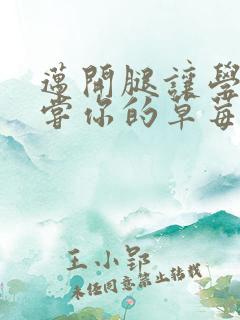 邁開腿讓學
嘗你的草莓
王小郢
未经同意禁止转载